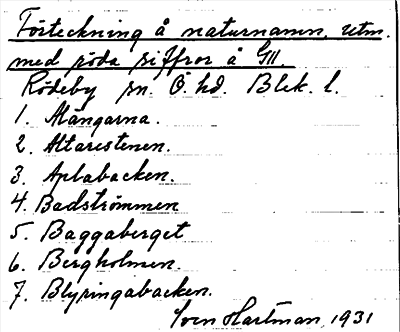 Förteckning å naturnamn, utm.
med röda siffror å GII.
Rödeby sn. Ö. hd. Blek. l.
1. Mångarna.
2. Altarestenen.
3. Aplabacken.
4. Badströmmen
5. Baggaberget
6. Bergholmen.
7. Blyringabacken.
Sven Hartman, 1931